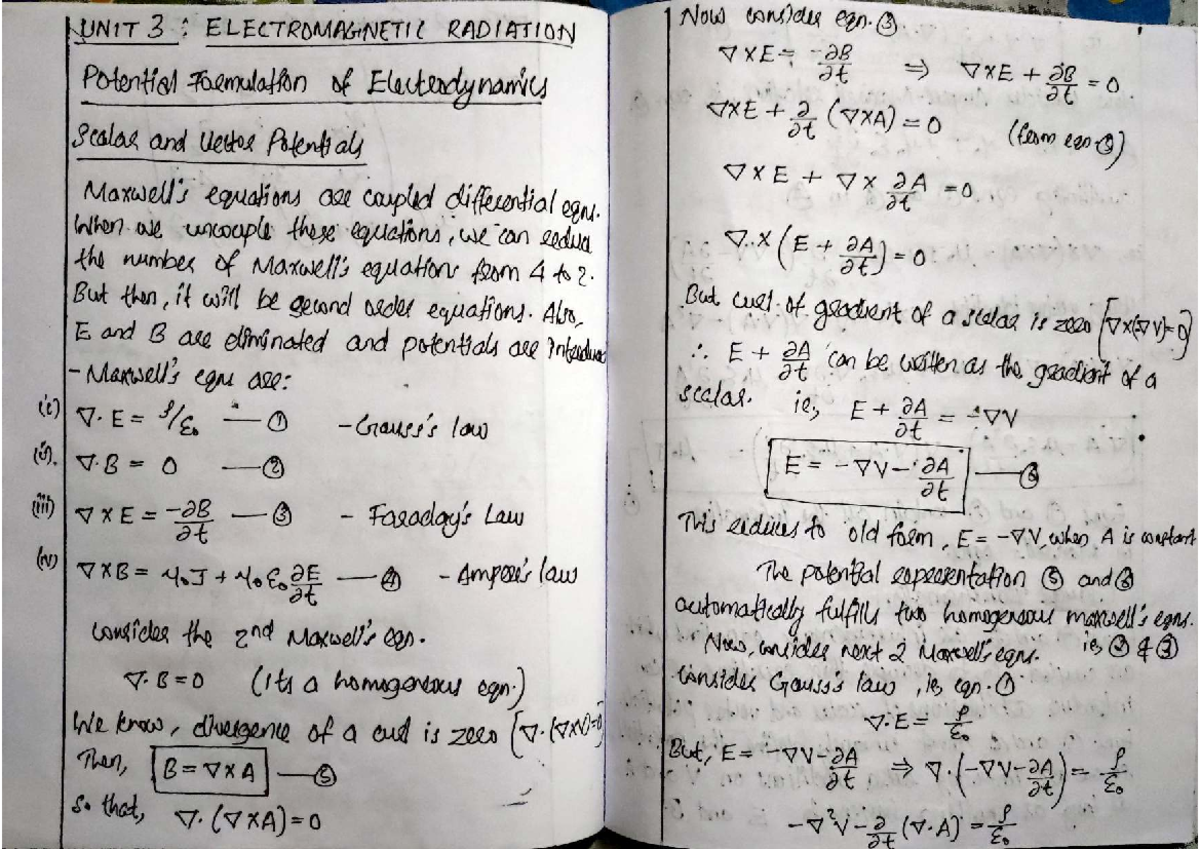 UNIT 3 : ELECTROMAGNETIC RADIATION
Potential Formulation of Electrodynamics
Scalar and Vector Potentials
Maxwell's equations are coupled differential eqns.
When we uncouple these equations, we can reduce
the number of Maxwell's equations from 4 to 2.
But then, it will be second order equations. Also,
E and B are eliminated and potentials are introduce
- Maxwell's eqns are:
(i) ∇. E = ρ/ε₀ — ① - Gauss's law
(ii). ∇.B = 0 — ②
(iii) ∇ X E = -∂B/∂t — ③ - Faraday's Law
(iv) ∇ X B = μ₀J + μ₀ε₀ ∂E/∂t — ④ - Ampere's law
Consider the 2nd Maxwell's eqn.
∇. B = 0 (its a homogeneous eqn.)
We know, divergence of a curl is zero [∇.(∇XV)=0]
Then, B = ∇ X A — ⑤
So that, ∇. (∇ X A) = 0
Now consider eqn. ③.
∇ X E = -∂B/∂t ⇒ ∇ X E + ∂B/∂t = 0
∇XE + ∂/∂t (∇XA) = 0 (from eqn ⑤)
∇ X E + ∇ X ∂A/∂t = 0
∇ X (E + ∂A/∂t) = 0
But curl of gradient of a scalar is zero [∇X(∇V)=0]
∴ E + ∂A/∂t can be written as the gradient of a
scalar. ie, E + ∂A/∂t = -∇V
E = -∇V - ∂A/∂t — ⑥
This reduces to old form, E = -∇V, when A is constant
The potential representation ⑤ and ⑥
automatically fulfills two homogeneous maxwell's eqns.
Now, consider next 2 Maxwell's eqns. ie, ② & ③
Consider Gauss's law, ie eqn. ①
∇. E = ρ/ε₀
But, E = -∇V - ∂A/∂t ⇒ ∇.(-∇V - ∂A/∂t) = ρ/ε₀
-∇²V - ∂/∂t (∇.A) = ρ/ε₀